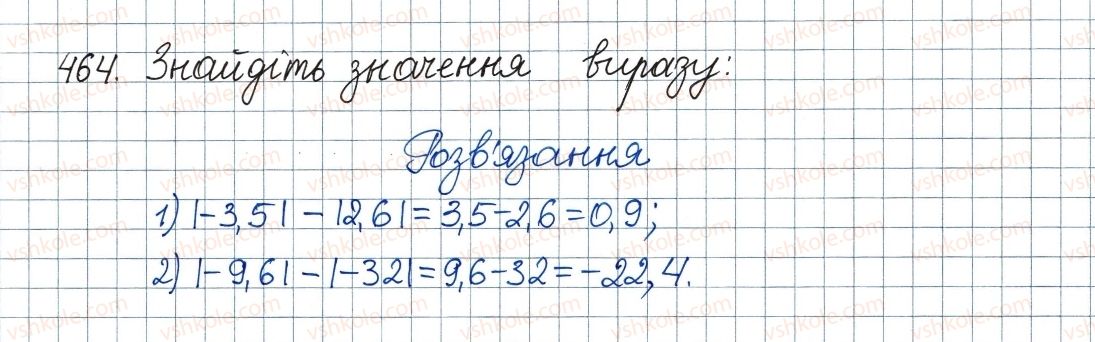 464. Знайдіть значення виразу:
Розв'язання
1) |-3,5| - |2,6| = 3,5-2,6 = 0,9;
2) |-9,6| - |-32| = 9,6-32 = -22,4.